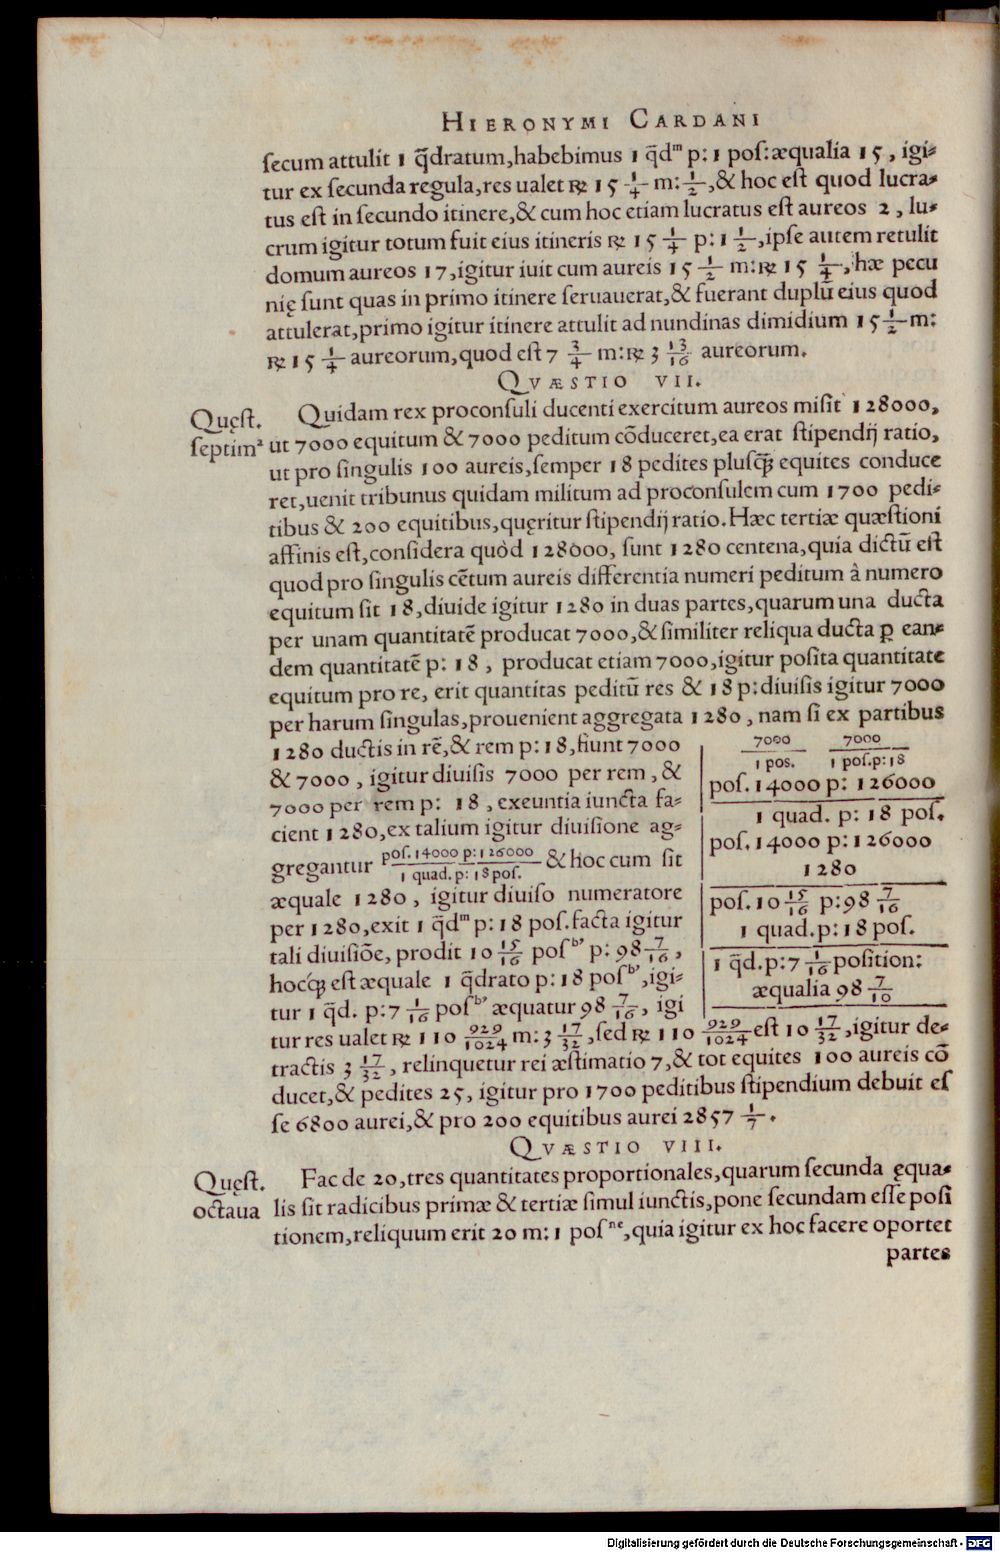 HIERONYMI CARDANI
ſecum attulit 1 q̃dratum,habebimus 1 q̃dᵐ p: 1 poſ:æqualia 15, igi⸗
tur ex ſecunda regula,res ualet ℞ 15 1/4 m: 1/2,& hoc eſt quod lucra⸗
tus eſt in ſecundo itinere,& cum hoc etiam lucratus eſt aureos 2, lu⸗
crum igitur totum fuit eius itineris ℞ 15 1/4 p: 1 1/2,ipſe autem retulit
domum aureos 17,igitur iuit cum aureis 15 1/2 m:℞ 15 1/4, hæ pecu
nię ſunt quas in primo itinere ſeruauerat,& fuerant duplũ eius quod
attulerat,primo igitur itinere attulit ad nundinas dimidium 15 1/2 m:
℞ 15 1/4 aureorum,quod eſt 7 3/4 m:℞ 3 13/16 aureorum.
QVÆSTIO VII.
Quęſt.
ſeptimᵃ
Quidam rex proconſuli ducenti exercitum aureos miſit 128000,
ut 7000 equitum & 7000 peditum cõduceret,ea erat ſtipendij ratio,
ut pro ſingulis 100 aureis,ſemper 18 pedites pluſq̃ equites conduce
ret,uenit tribunus quidam militum ad proconſulem cum 1700 pedi⸗
tibus & 200 equitibus,quęritur ſtipendij ratio. Hæc tertiæ quæſtioni
affinis eſt,conſidera quòd 128000, ſunt 1280 centena,quia dictũ eſt
quod pro ſingulis cẽtum aureis differentia numeri peditum â numero
equitum ſit 18,diuide igitur 1280 in duas partes,quarum una ducta
per unam quantitatẽ producat 7000,& ſimiliter reliqua ducta ꝑ ean⸗
dem quantitatẽ p: 18, producat etiam 7000,igitur poſita quantitate
equitum pro re, erit quantitas peditũ res & 18 p:diuiſis igitur 7000
per harum ſingulas,prouenient aggregata 1280, nam ſi ex partibus
1280 ductis in rẽ,& rem p: 18,fiunt 7000
& 7000, igitur diuiſis 7000 per rem, &
7000 per rem p: 18, exeuntia iuncta fa⸗
cient 1280,ex talium igitur diuiſione ag⸗
gregantur poſ.14000 p:126000/1 quad. p: 18 poſ. & hoc cum ſit
æquale 1280, igitur diuiſo numeratore
per 1280,exit 1 q̃dᵐ p: 18 poſ.facta igitur
tali diuiſiõe, prodit 10 15/16 poſᵇ’ p: 98 7/16,
hocq́; eſt æquale 1 q̃drato p: 18 poſᵇ’,igi⸗
tur 1 q̃d. p:7 1/16 poſᵇ’ æquatur 98 7/16, igi
7000/1 pos. 7000/1 poſ.p:18
poſ. 14000 p: 126000
1 quad. p: 18 poſ.
poſ. 14000 p: 126000
1280
poſ. 10 15/16 p:98 7/16
1 quad.p: 18 poſ.
1 q̃d.p:7 1/16 poſition:
æqualia 98 7/10
tur res ualet ℞ 110 929/1024 m: 3 17/32,ſed ℞ 110 929/1024 eſt 10 17/32,igitur de⸗
tractis 3 17/32, relinquetur rei æſtimatio 7,& tot equites 100 aureis cõ
ducet,& pedites 25, igitur pro 1700 peditibus ſtipendium debuit eſ
ſe 6800 aurei,& pro 200 equitibus aurei 2857 1/7.
QVÆSTIO VIII.
Quęſt.
octaua
Fac de 20,tres quantitates proportionales,quarum ſecunda ęqua⸗
lis ſit radicibus primæ & tertiæ ſimul iunctis,pone ſecundam eſſe poſi
tionem,reliquum erit 20 m: 1 poſⁿᵉ,quia igitur ex hoc facere oportet
partes
Digitalisierung gefördert durch die Deutsche Forschungsgemeinschaft - DFG